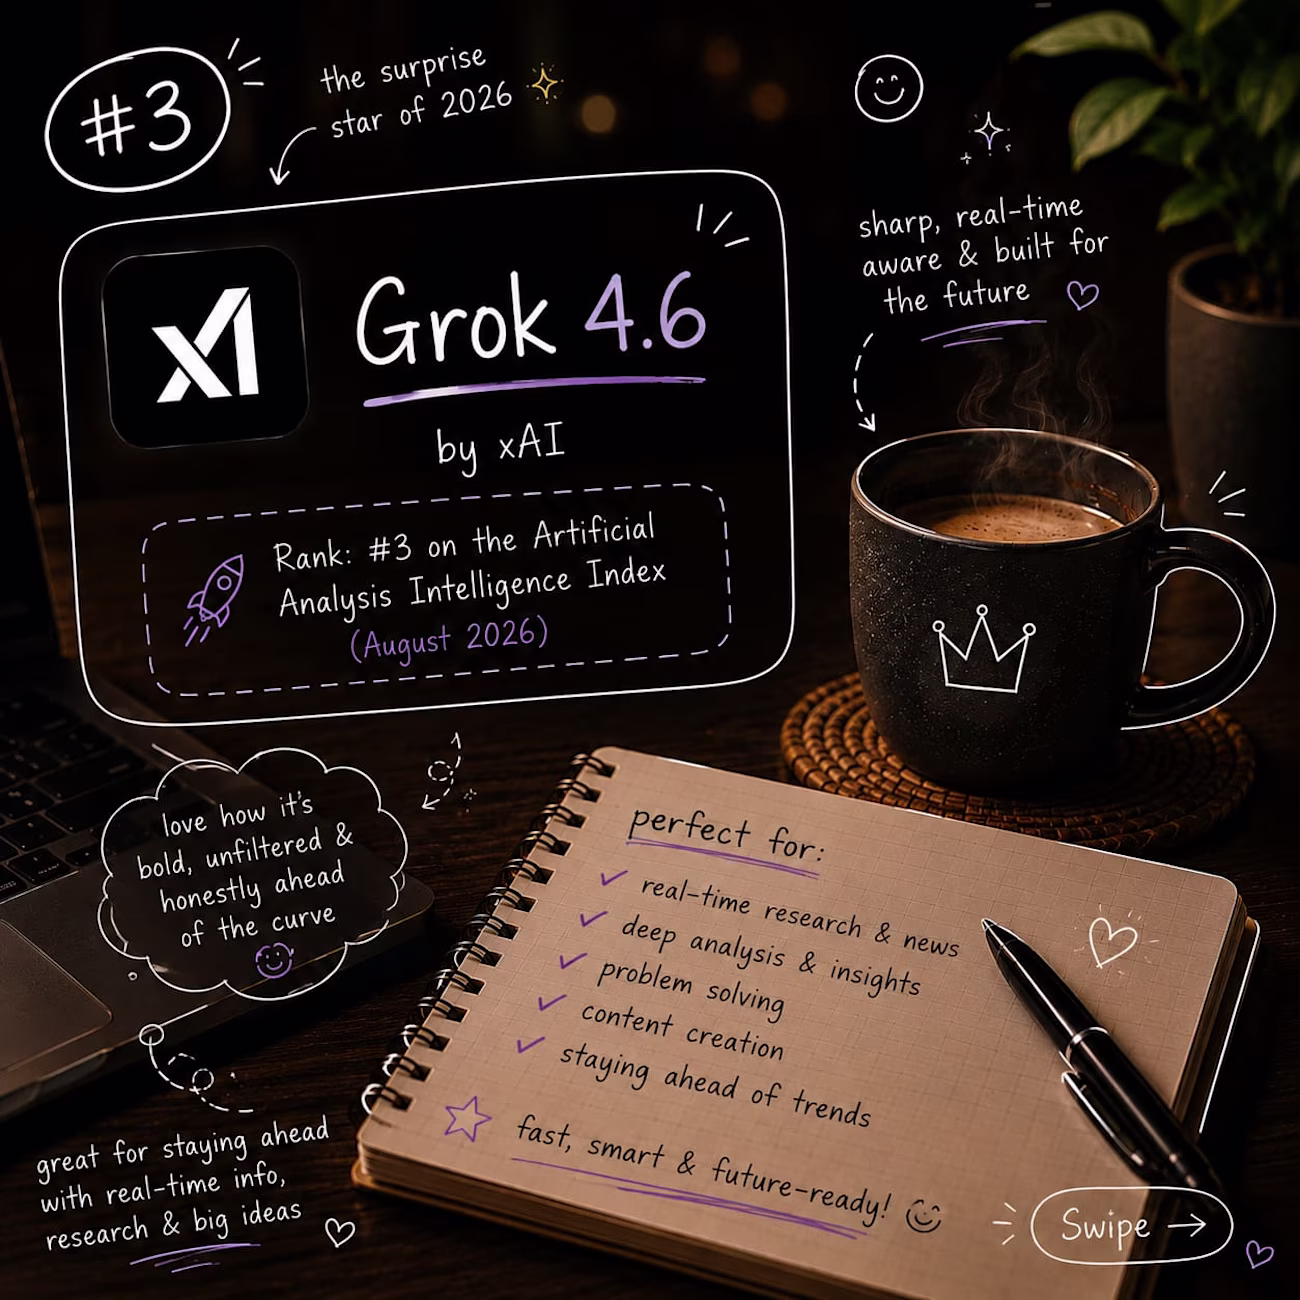 #3
the surprise
star of 2026
xAI
Grok 4.6
by xAI
Rank: #3 on the Artificial
Analysis Intelligence Index
(August 2026)
sharp, real-time
aware & built for
the future
love how it's
bold, unfiltered &
honestly ahead
of the curve
great for staying ahead
with real-time info,
research & big ideas
perfect for:
real-time research & news
deep analysis & insights
problem solving
content creation
staying ahead of trends
fast, smart & future-ready!
Swipe →